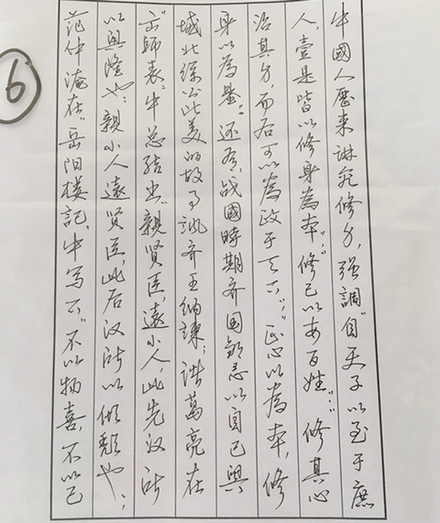 6
中國人歷来讲究修身,强調"自天子以至于庶
人,壹是皆以修身為本";"修己以安百姓";"修其心
治其身,而后可以為政于天下";"正心以為本,修
身以為基"。还有,战國時期齐国邹忌以自己與
城北徐公比美的故事讽齐王纳谏;諸葛亮在
"出師表"中总结出"親賢臣,遠小人,此先汉所
以興隆也;親小人遠贤臣,此后汉所以倾颓也";
范仲淹在"岳阳楼記"中写下"不以物喜,不以己